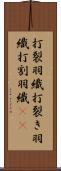 打裂羽織打裂き羽
織打割羽織××